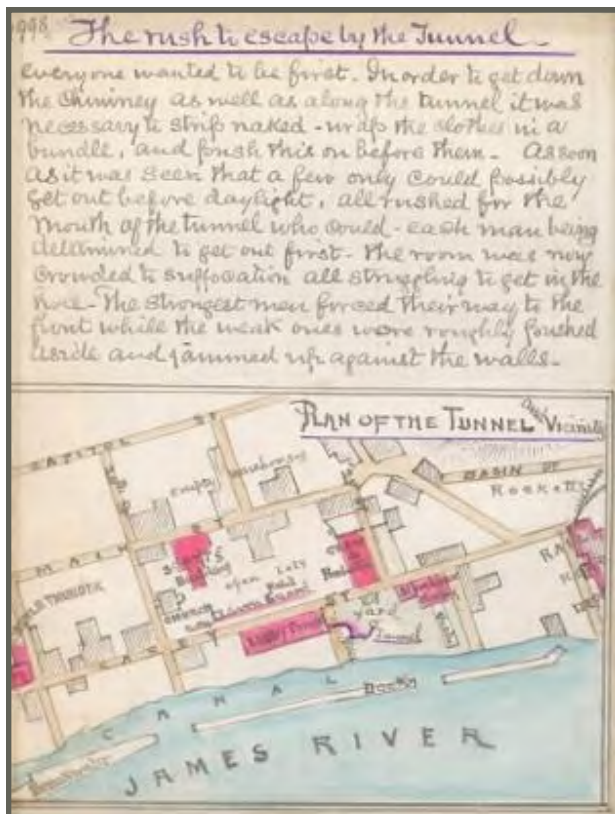 998
The rush to escape by the Tunnel -
everyone wanted to be first. In order to get down
the chimney as well as along the tunnel it was
necessary to strip naked - wrap the clothes in a
bundle, and push this on before them - As soon
as it was seen that a few only could possibly
get out before daylight, all rushed for the
mouth of the tunnel who could - each man being
determined to get out first - the room was now
crowded to suffocation all struggling to get in the
hole - The strongest men forced their way to the
front while the weak ones were roughly pushed
aside and jammed up against the walls -
PLAN OF THE TUNNEL and Vicinity
CAPITOL ST
BASIN ST
Rocketts
empty
MAIN ST
open Lots
church
CAREY ST
yard
Libby Prison
Tunnel
CANAL
Dock
JAMES RIVER